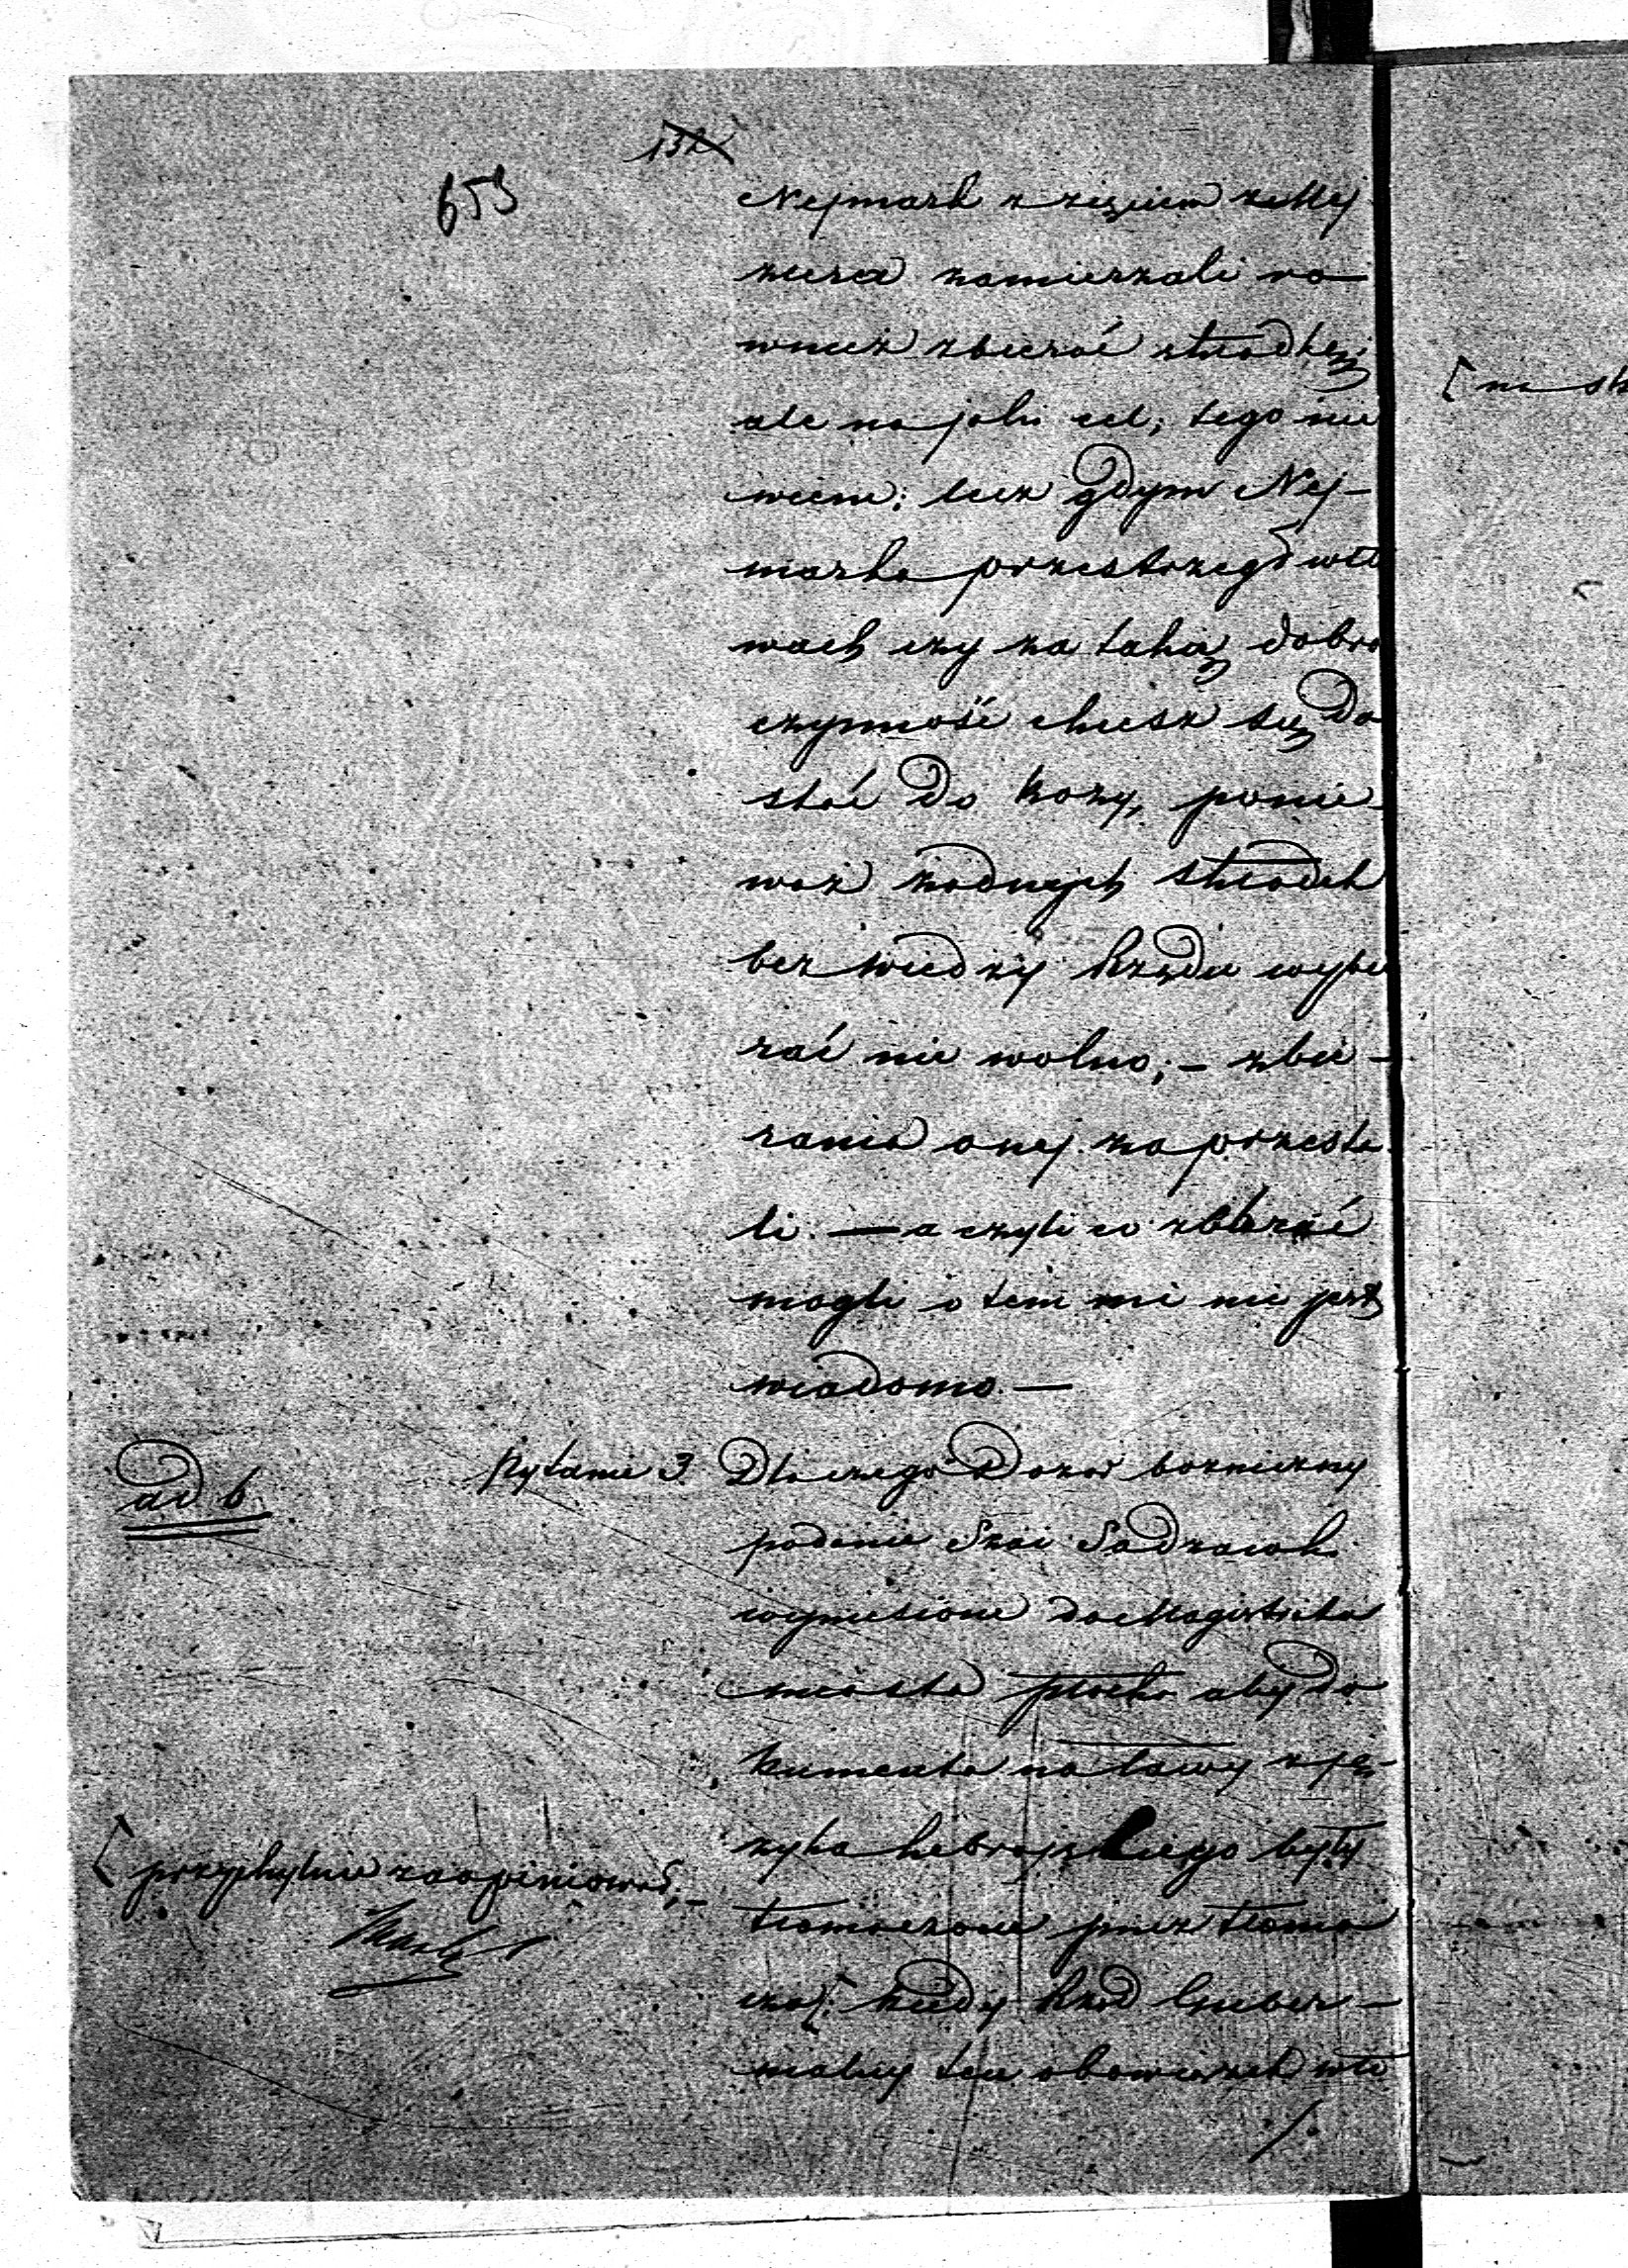 132
653
Nejmark z zięciem ze Mej
zursa zamierzali ro
wnież zbierać składkę;
ale na jaki cel, tego nie
wiem: lecz gdym Nej-
marka przestrzegł wsło
wach czy za taką dobro
czynność chcesz się do
stać do kozy, ponie-
waż żadnych składek
bez wiedzy Rządu wybie
rać nie wolno; – zbie-
rania onej zaprzesta
li. — a czyli co zbierać
mogli o tem mi nie jest
wiadomo. —
ad 6. Pytanie 3. Dlaczego Dozór bożniczny
podanie Szai Sadzawki
wyniesione do Magistratu
miasta Płocka aby do
kumenta na ławy z ję-
zyka hebrajskiego były
tłomaczone przez tłoma
cza [: kiedy Rząd Guber-
nialny ten obowiązek wło
./.
[przychylnie zaopiniował, –
[na sk